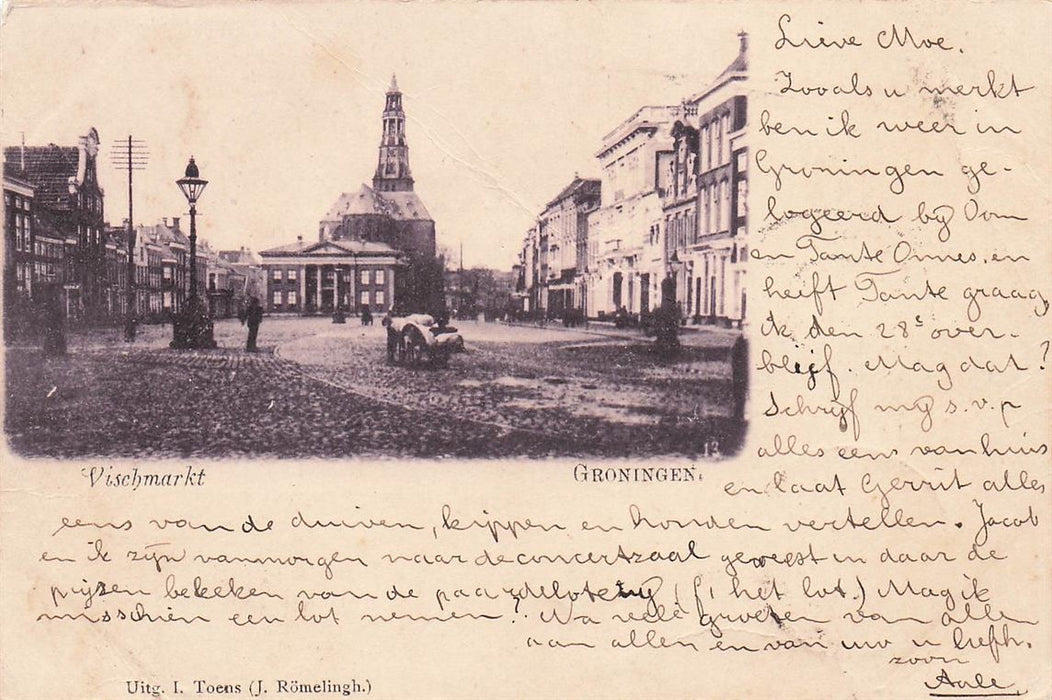 Lieve Moe.
Zooals u merkt
ben ik weer in
Groningen ge-
logeerd bij Oom
en Tante Onnes, en
heeft Tante graag
ik den 28e over-
blijf. Mag dat?
Schrijf mij s.v.p
alles eens van huis
en laat Gerrit alles
eens van de duiven, kippen en honden vertellen. Jacob
en ik zijn vanmorgen naar de concertzaal geweest en daar de
prijzen bekeken van de paardeloterij (f1 het lot.) Mag ik
misschien een lot nemen? Na vele groeten van allen
aan allen en van uw u liefh.
zoon
Aale
13
Vischmarkt
GRONINGEN.
Uitg. I. Toens (J. Römelingh.)